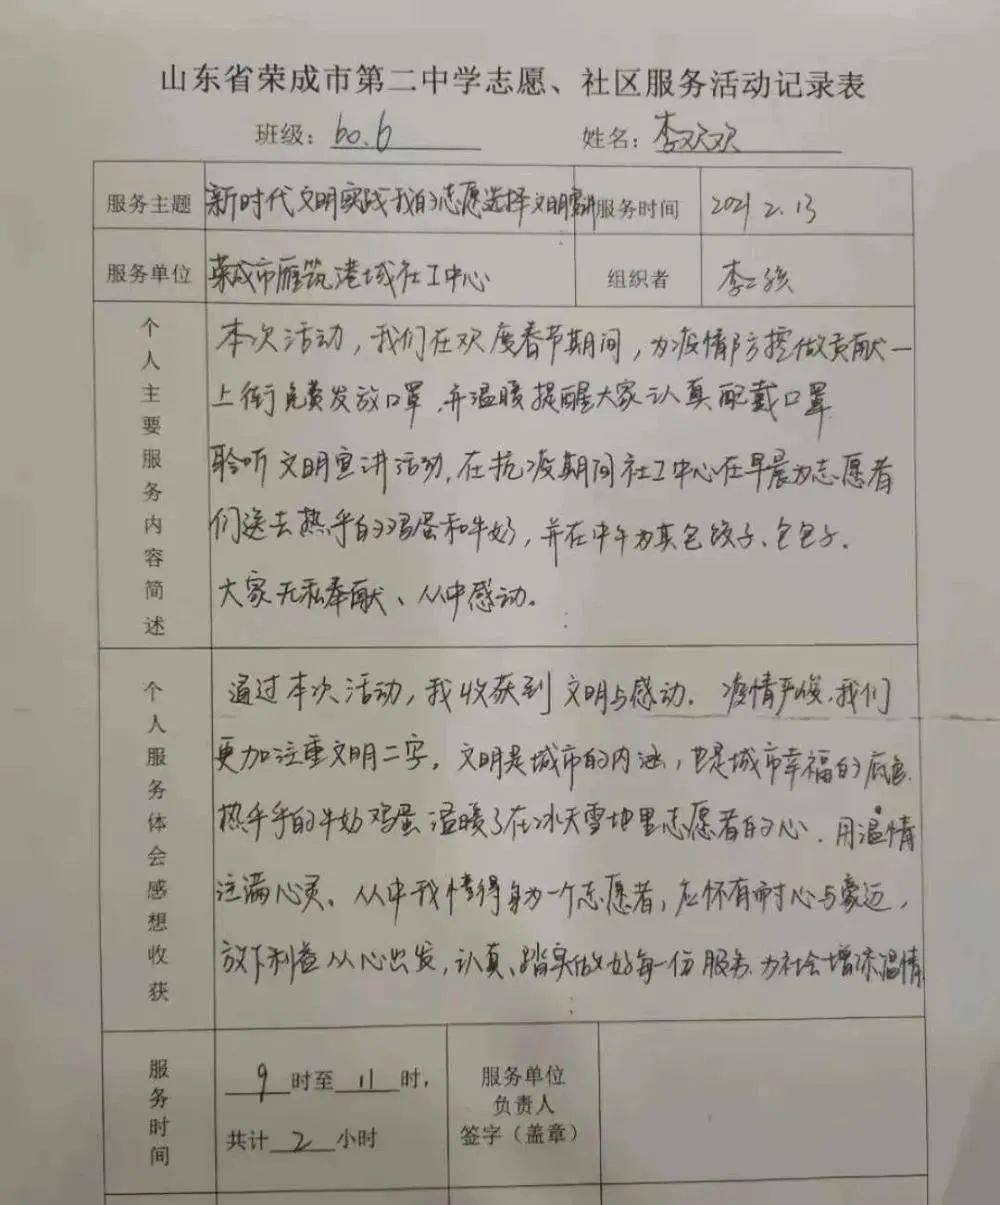 山东省荣成市第二中学志愿、社区服务活动记录表
班级：60.6 姓名：李欢欢
服务主题 新时代文明实践我的志愿选择文明宣讲 服务时间 2021 2.13
服务单位 荣成市雁筑港城社工中心 组织者 李二孩
个人主要服务内容简述
本次活动，我们在欢度春节期间，为疫情防控做贡献一
上街免费发放口罩，并温暖提醒大家认真配戴口罩
聆听文明宣讲活动，在抗疫期间社工中心在早晨为志愿者
们送去热乎的鸡蛋和牛奶，并在中午为其包饺子、包包子。
大家无私奉献、从中感动。
个人服务体会感想收获
通过本次活动，我收获到文明与感动。疫情严峻，我们
更加注重文明二字。文明是城市的内涵，也是城市幸福的底色。
热乎乎的牛奶鸡蛋温暖了在冰天雪地里志愿者的心，用温情
注满心灵。从中我懂得身为一个志愿者，应怀有耐心与豪迈，
放下利益从心出发，认真、踏实做好每一份服务，为社会增添温情
服务时间
9时至11时，
共计2小时
服务单位
负责人
签字（盖章）